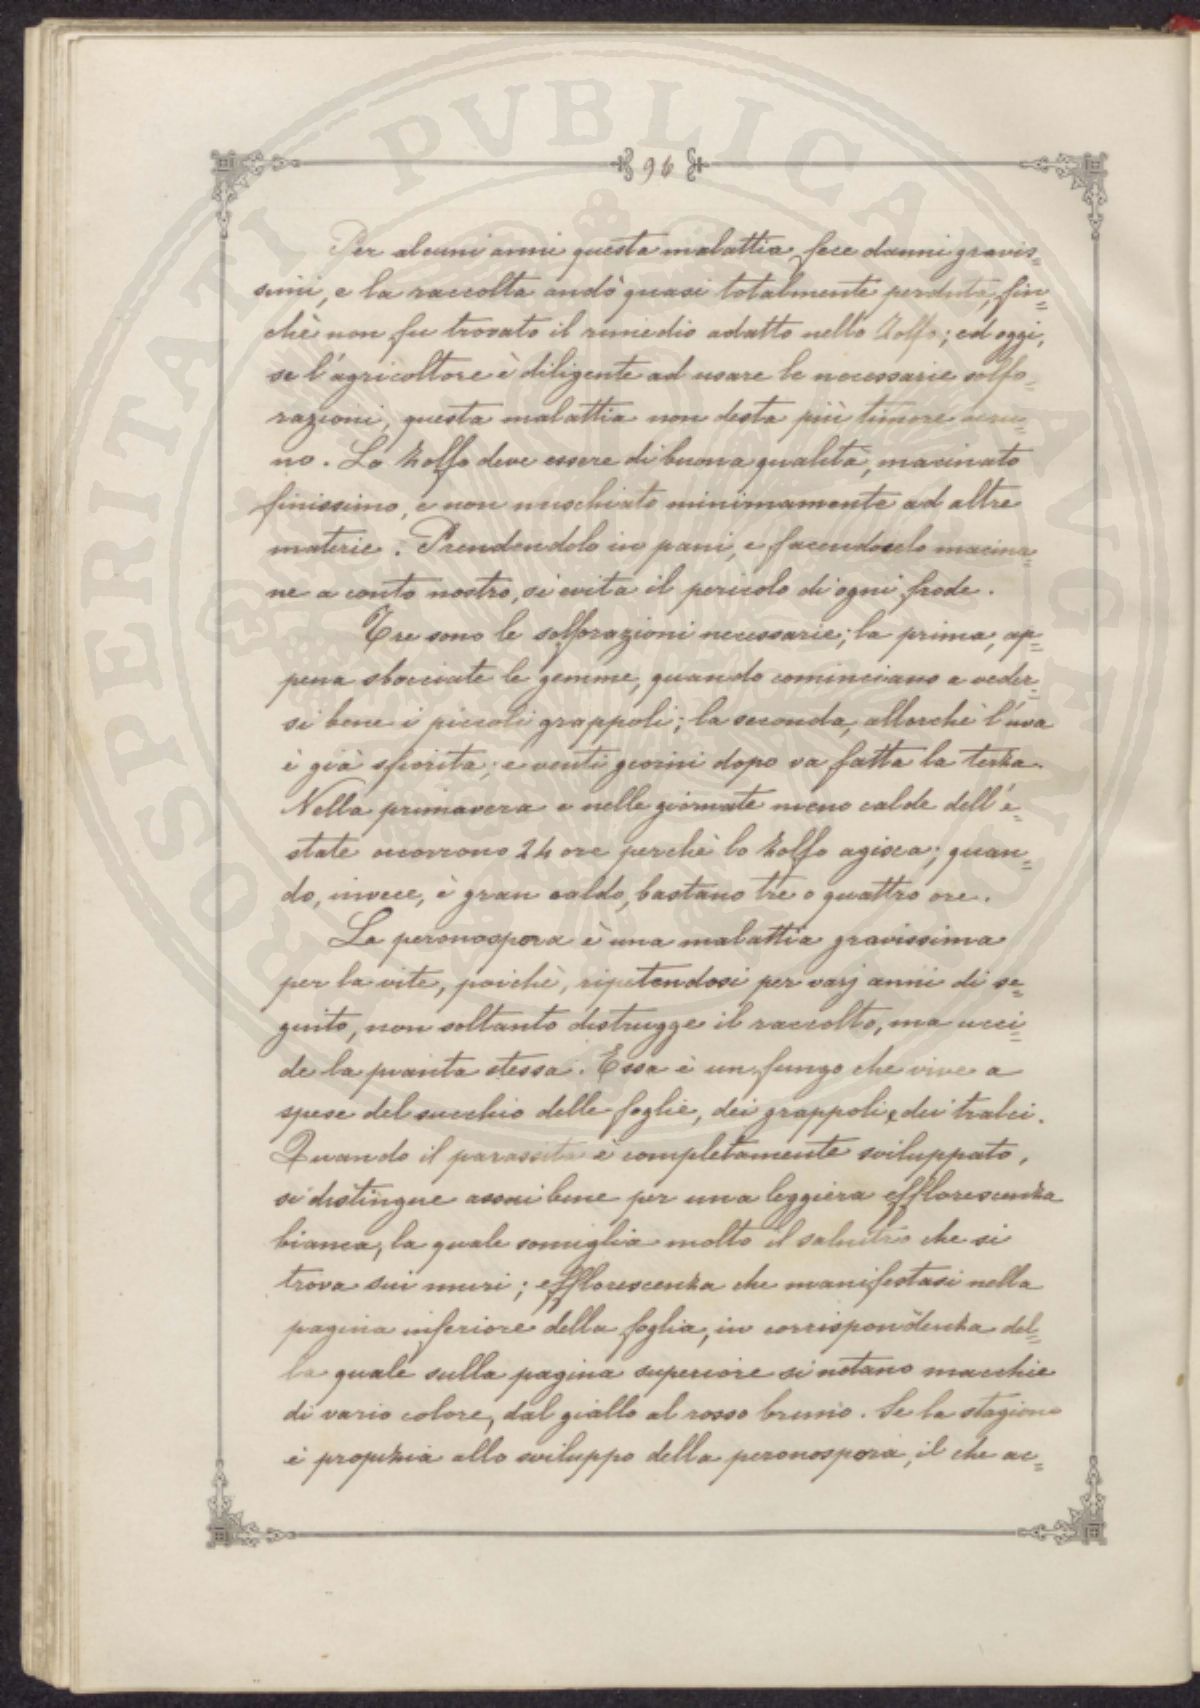 96
Per alcuni anni questa malattia fece danni gravis=
simi, e la raccolta andò quasi totalmente perduta, fin=
chè non fu trovato il rimedio adatto nello Zolfo; ed oggi,
se l'agricoltore è diligente ad usare le necessarie solfo=
razioni, questa malattia non desta più timore veru=
no. Lo Zolfo deve essere di buona qualità, macinato
finissimo, e non mischiato minimamente ad altre
materie. Prendendolo in pani, e facendoselo macina=
re a conto nostro, si evita il pericolo di ogni frode.
Tre sono le solforazioni necessarie; la prima, ap=
pena sbocciate le gemme, quando cominciano a veder=
si bene i piccoli grappoli; la seconda, allorchè l'uva
è già sfiorita; e venti giorni dopo va fatta la terza.
Nella primavera e nelle giornate meno calde dell'e=
state occorrono 24 ore perchè lo Zolfo agisca; quan=
do, invece, è gran caldo, bastano tre o quattro ore.
La peronospora è una malattia gravissima
per la vite, poichè, ripetendosi per varj anni di se=
guito, non soltanto distrugge il raccolto, ma ucci=
de la pianta stessa. Essa è un fungo che vive a
spese del succhio delle foglie, dei grappoli e dei tralci.
Quando il parassita è completamente sviluppato,
si distingue assai bene per una leggiera efflorescenza
bianca, la quale somiglia molto il salnitro che si
trova sui muri; efflorescenza che manifestasi nella
pagina inferiore della foglia, in corrispondenza del=
la quale sulla pagina superiore si notano macchie
di vario colore, dal giallo al rosso bruno. Se la stagione
è propizia allo sviluppo della peronospora, il che ac=
PROSPERITATI PVBLICAE AVGENDAE